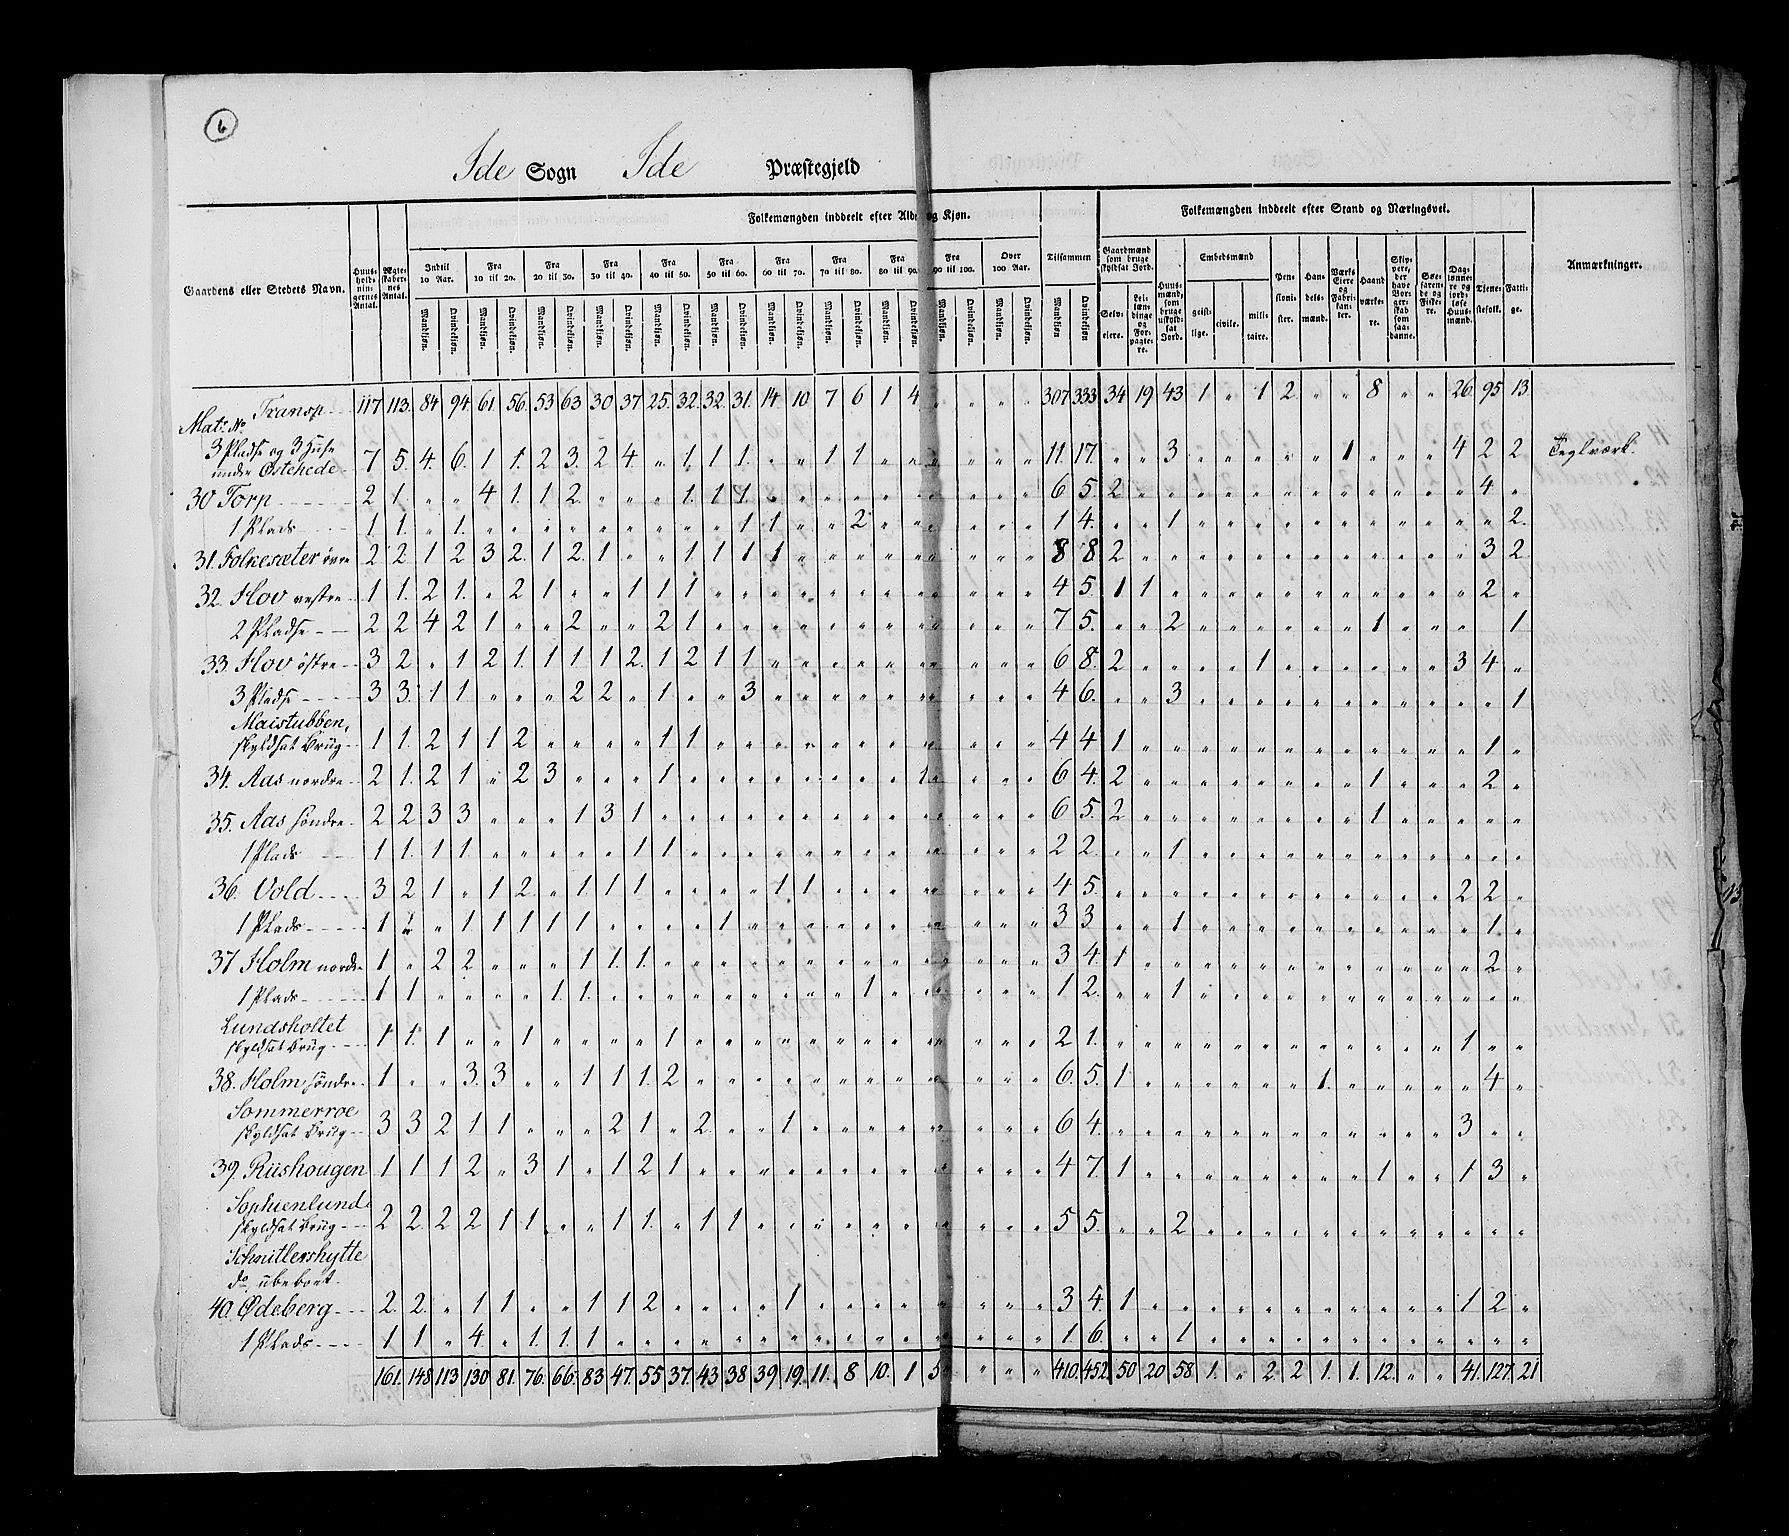 6
Ide Sogn Ide Præstegjeld
Gaardens eller Stedets Navn.
Huusholdningernes Antal.
Ægteskabernes Antal.
Folkemængden inddeelt efter Alder og Kjøn.
Indtil 10 Aar.
Fra 10 til 20.
Fra 20 til 30.
Fra 30 til 40.
Fra 40 til 50.
Fra 50 til 60.
Fra 60 til 70.
Fra 70 til 80.
Fra 80 til 90.
Fra 90 til 100.
Over 100 Aar.
Mandkjøn. Qvindekjøn. Mandkjøn. Qvindekjøn. Mandkjøn. Qvindekjøn. Mandkjøn. Qvindekjøn. Mandkjøn. Qvindekjøn. Mandkjøn. Qvindekjøn. Mandkjøn. Qvindekjøn. Mandkjøn. Qvindekjøn. Mandkjøn. Qvindekjøn. Mandkjøn. Qvindekjøn. Mandkjøn. Qvindekjøn.
Tilsammen
Mandkjøn. Qvindekjøn.
Folkemængden inddeelt efter Stand og Næringsvei.
Gaardmænd som bruge skyldsat Jord.
Selveiere.
Leilændinge og Forpagtere.
Huusmænd, som bruge uskyldsat Jord.
Embedsmænd
geistlige. civile. militaire.
Pensionister.
Handelsmænd.
Værks Eiere og Fabrikanter.
Haandværkere.
Skippere, der have Borgerskab som saadanne.
Søefarende og Fiskere.
Daglønnere og jordløse Huusmænd.
Tjenestefolk.
Fattige.
Anmærkninger.
Transp. 117 113 84 94 61 56 53 63 30 37 25 32 32 31 14 10 7 6 1 4 " " " " 307 333 34 19 43 1 " 1 2 " " 8 " " 26 95 13
Matr. No
3 Pladse og 3 Huse
under Östehede 7 5 4 6 1 1 2 3 2 4 " 1 1 1 " " 1 1 " " " " " " 11 17 " " 3 " " " " " 1 " " " 4 2 2 Teglværk.
30 Torp 2 1 " " 4 1 1 2 " " " 1 1 1 " " " " " " " " " " 6 5 2 " " " " " " " " " " " " 4 "
1 Plads 1 1 " 1 " " " " " " " " " 1 1 " " 2 " " " " " " 1 4 " " 1 " " " " " " " " " " " 2
31. Folkesæter övre 2 2 1 2 3 2 1 2 1 " " 1 1 1 1 " " " " " " " " " 8 8 2 " " " " " " " " " " " " 3 2
32. Hov vestre 1 1 2 1 " 2 1 " " 1 1 1 " " " " " " " " " " " " 4 5 1 1 " " " " " " " " " " " 2 "
2 Pladse 2 2 4 2 1 " " 2 " " 2 1 " " " " " " " " " " " " 7 5 " " 2 " " " " " " 1 " " " 1
33 Hov östre 3 2 " 1 2 1 1 1 1 2 1 2 1 1 " " " " " " " " " " 6 8 2 " " " " 1 " " " " " " 3 4 "
3 Pladse 3 3 1 1 " " " 2 2 " 1 " " 3 " " " " " " " " " " 4 6 " " 3 " " " " " " " " " " " 1
Maistubben,
skyldsat Brug 1 1 2 1 1 2 " " " " 1 1 " " " " " " " " " " " " 4 4 1 " " " " " " " " " " " " 1 "
34. Aas nordre 2 1 2 1 " 2 3 " " " 1 " " " " " " " " 1 " " " " 6 4 2 " " " " " " " " 1 " " " 2 "
35. Aas söndre 2 2 3 3 " " " 1 3 1 " " " " " " " " " " " " " " 6 5 2 " " " " " " " " 1 " " " " "
1 Plads 1 1 1 1 " " " " " 1 1 " " " " " " " " " " " " " 2 2 " " 1 " " " " " " " " " " " "
36. Vold 3 2 1 " 1 2 " 1 1 1 " " " " 1 1 " " " " " " " " 4 5 " " " " " " " " " " " " 2 2 "
1 Plads 1 1 " 1 1 1 1 1 " " " " 1 " " " " " " " " " " " 3 3 " " 1 " " " " " " " " " " 1 "
37 Holm nordre 1 " 2 2 " " " 1 1 1 " " " " " " " " " " " " " " 3 4 1 " " " " " " " " " " " " 2 "
1 Plads 1 1 " " " " 1 1 " " " " " " " " " 1 " " " " " " 1 2 " " 1 " " " " " " " " " " " "
Lundsholtet
skyldsat Brug 1 1 1 " " 1 " " " " 1 " " " " " " " " " " " " " 2 1 " " " " " " " " " " " " 1 " "
38. Holm söndre 1 " " 3 3 " " 1 1 1 2 " " " " " " " " " " " " " 6 5 1 " " " " " " 1 " " " " " 4 "
Sommerroe
skyldsat Brug 3 3 2 1 1 " " " 2 1 " 2 " " 1 " " " " " " " " " 6 4 " " " " " " " " " " " " 3 " "
39. Rüshougen 1 1 1 2 " 3 1 " 1 2 1 " " " " " " " " " " " " " 4 7 1 " " " " " " " " 1 " " 1 3 "
Sophienlund
skyldsat Brug 2 2 2 2 1 1 " " 1 1 " 1 1 " " " " " " " " " " " 5 5 " " 2 " " " " " " " " " " " "
Schnitlershytte
do ubeboet.
40. Ødeberg 2 2 " 1 1 " " 1 1 2 " " " " 1 " " " " " " " " " 3 4 1 " " " " " " " " " " " 1 2 "
1 Plads 1 1 " 4 " 1 1 1 " " " " " " " " " " " " " " " " 1 6 " " 1 " " " " " " " " " " " "
161 148 113 130 81 76 66 83 47 55 37 43 38 39 19 11 8 10 1 5 " " " " 410 452 50 20 58 1 " 2 2 1 1 12 " " 41 127 21